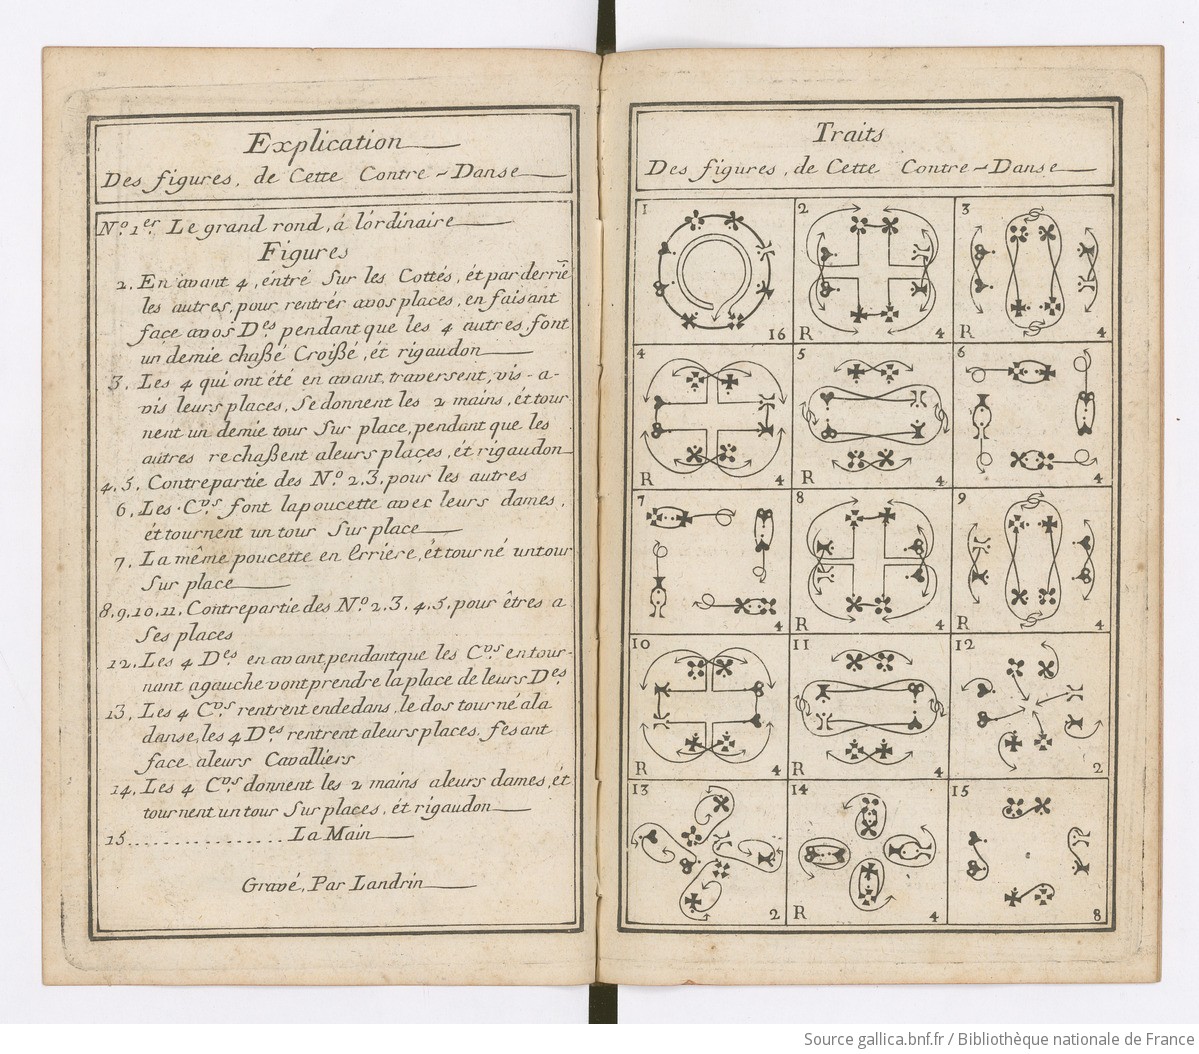 Explication
Des figures, de Cette Contre-Danse
N.º 1.er Le grand rond, á lordinaire
Figures
2. En avant 4, éntré sur les Cottés, ét par derriē
les autres, pour rentrér avos places, en faisant
face avos D.es pendant que les 4 autres, font
un demie chaßé Croißé, ét rigaudon
3. Les 4 qui ont été en avant, traversent, vis-a-
vis leurs places, se donnent les 2 mains, ét tour
nent un demie tour sur place, pendant que les
autres rechaßent aleurs places, ét rigaudon
4, 5. Contrepartie des N.º 2. 3. pour les autres
6. Les C.vs font la poucette avec leurs dames,
ét tournent un tour sur place
7. La même poucette en Erriére, ét tourné un tour
sur place
8. 9. 10. 11. Contrepartie des N.º 2. 3. 4. 5. pour êtres a
ses places
12. Les 4 D.es en avant, pendant que les C.vs en tour-
nant agauche vont prendre la place de leurs D.es
13. Les 4 C.vs rentrent endedans, le dos tourné ala
danse, les 4 D.es rentrent aleurs places, fesant
face aleurs Cavalliérs
14. Les 4 C.vs donnent les 2 mains aleurs dames, ét
tournent un tour sur places, ét rigaudon
15................La Main
Gravé, Par Landrin
Traits
Des figures, de Cette Contre-Danse
1
16
2
R
4
3
R
4
4
R
4
5
R
4
6
4
7
4
8
R
4
9
R
4
10
R
4
11
R
4
12
2
13
2
14
R
4
15
8
Source gallica.bnf.fr / Bibliothèque nationale de France